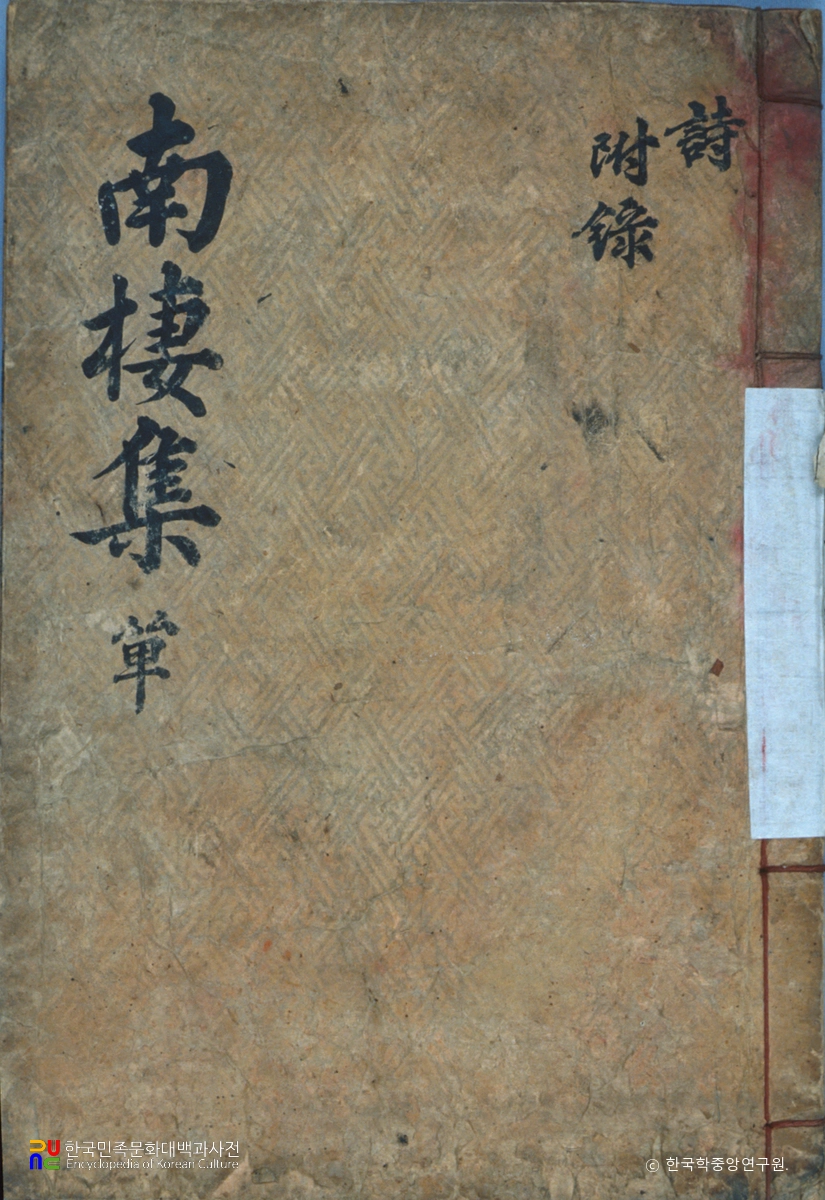 詩
附錄
南棲集 單
한국민족문화대백과사전
Encyclopedia of Korean Culture
ⓒ 한국학중앙연구원.